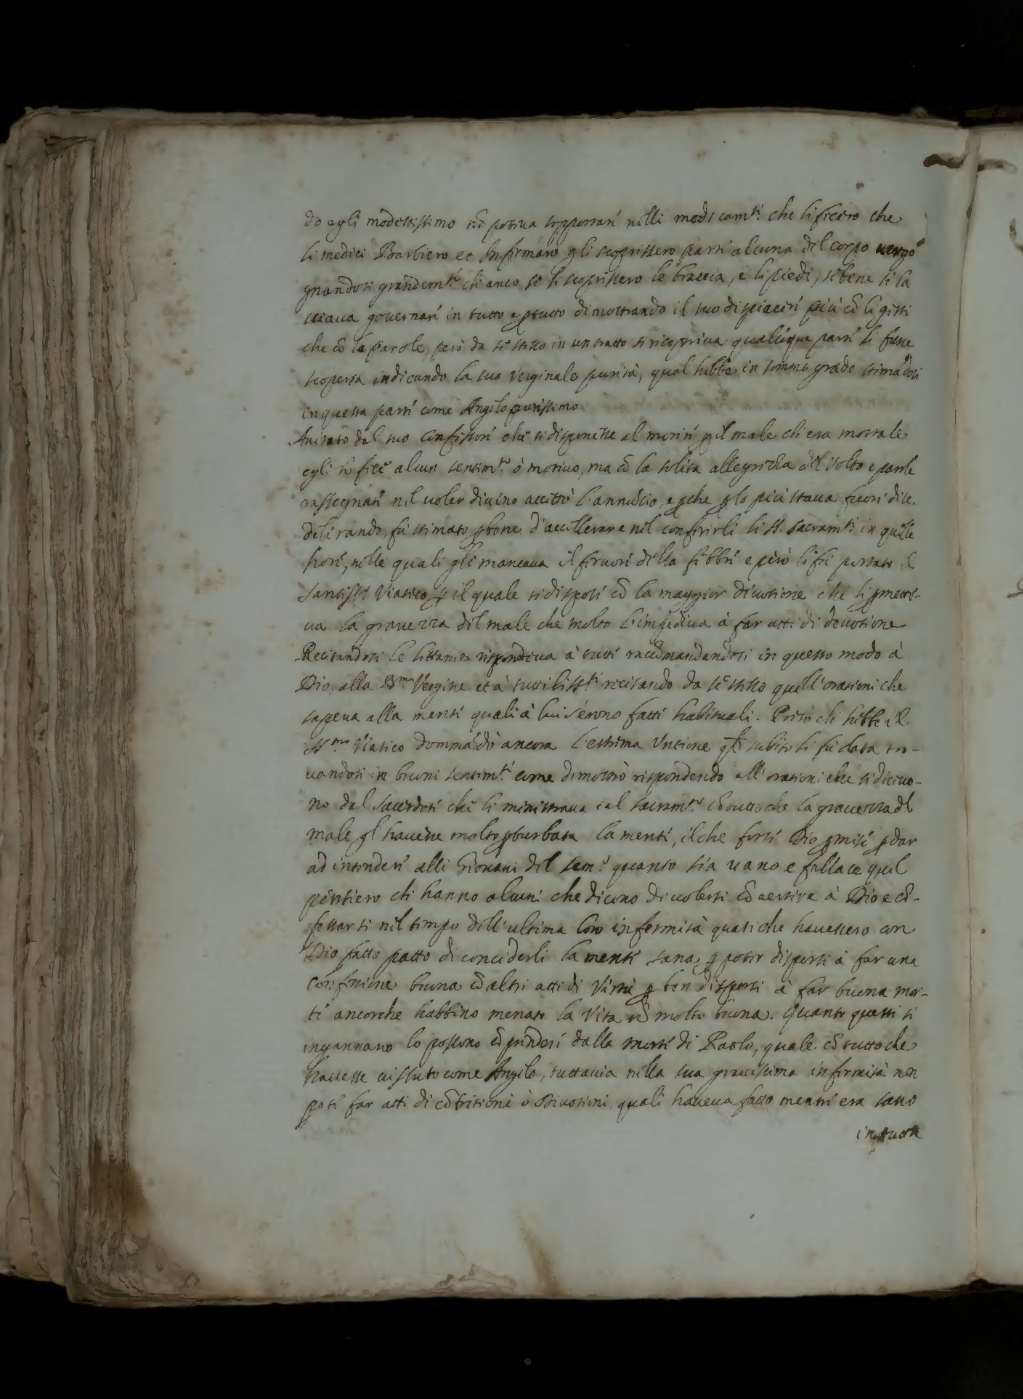 do egli modestissimo nō poteua sopportare nelli medicam.ti che li fecero che
li medici Barbiero et Infirmaro gli scoprissero parte alcuna del corpo uergo
gnandosi grandem.te ch'anco se li scoprissero le braccia, e li piedi, se bene si la
sciaua gouernare in tutto e ꝑ tutto dimostrando il suo dispiacere più cō li gesti
che cō le parole, però da se stesso in un tratto si ricopriua qualūque parte li fusse
scoperta indicando la sua Verginale purità, qual hebbe in sommo grado stimādosi
in questa parte come Angelo purissimo
Auisato dal suo Confessore che si disponesse al morire ꝑ il male ch'era mortale
egli nō fece alcun sentim.to ò motiuo, ma cō la solita allegrezza del Volto e parole
rassegnate nel uoler diuino accettò l'annuncio, e ꝑche ꝑ lo più staua fuori di se
delirando, fù stimato bene d'accellerare nel conferirli li SS. Sacram.ti in quelle
hore, nelle quali gli mancaua il feruore della febbre e però li fù portato il
Santiss.o Viatico ꝑ il quale si dispose cō la maggior diuotione che li ꝑmette-
ua la grauezza del male che molto l'impediua à far atti di deuotione
Recitandosi le littanie rispondeua à tutti raccōmandandosi in questo modo à
Dio, alla B.ma Vergine et à tutti li SS.ti recitando da se stesso quell'orationi che
sapeua alla mente quali à lui s'erono fatte habituali. Posto ch'hebbe il
SS.mo Viatico dommādò ancora l'estrema Vntione subito li fù data tro-
uandosi in buoni sentim.ti come dimostrò rispondendo all'orationi che si diceuo-
no dal Sacerdote che li ministraua tal sacram.to cō tutto che la grauezza del
male gl'hauesse molto ꝑturbata la mente, il che forse Dio ꝑmise ꝑ dar
ad intendere alli Giouani del sem.o quanto sia uano e fallace quel
pensiero ch'hanno alcuni che dicono di uolersi cōuertire à Dio e cō-
fessarsi nel tempo dell'ultima loro infermità quasi che hauessero con
Dio fatto patto di concederli la mente sana ꝑ poter disporsi à far una
confessione buona et altri atti di Virtù ꝑ ben disporsi à far buona mor-
te ancorche habbino menato la Vita nō molto buona. Quanto questi si
ingannano lo possono cōprendere dalla morte di Paolo, quale cō tutto che
hauesse uissuto come Angelo, tuttauia nella sua grauissima infermità non
pote far atti di cōtritione ò Diuotione quali haueua fatto mentre era sano